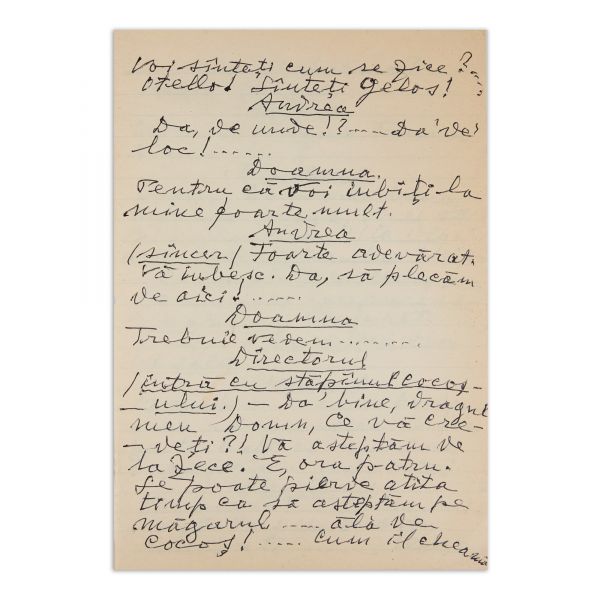 Voi sînteți cum se zice?...
Otello! Sînteți gelos!
Andrea
Da, de unde!?..... Da' de
loc!......
Doamna.
Pentru că voi iubiți la
mine foarte mult.
Andrea
(sincer) Foarte adevărat.
Vă iubesc. Da, să plecăm
de aici.......
Doamna
Trebuie vedem.........
Directorul
(intră cu stăpînul cocoș-
- ului.) - Da' bine, dragul
meu Domn, Ce vă cre-
- deți?! Vă așteptăm de
la zece. E, ora patru.
Se poate pierde atîta
timp ca să așteptăm pe
măgarul ..... ăla de
cocoș!..... cum îl cheamă